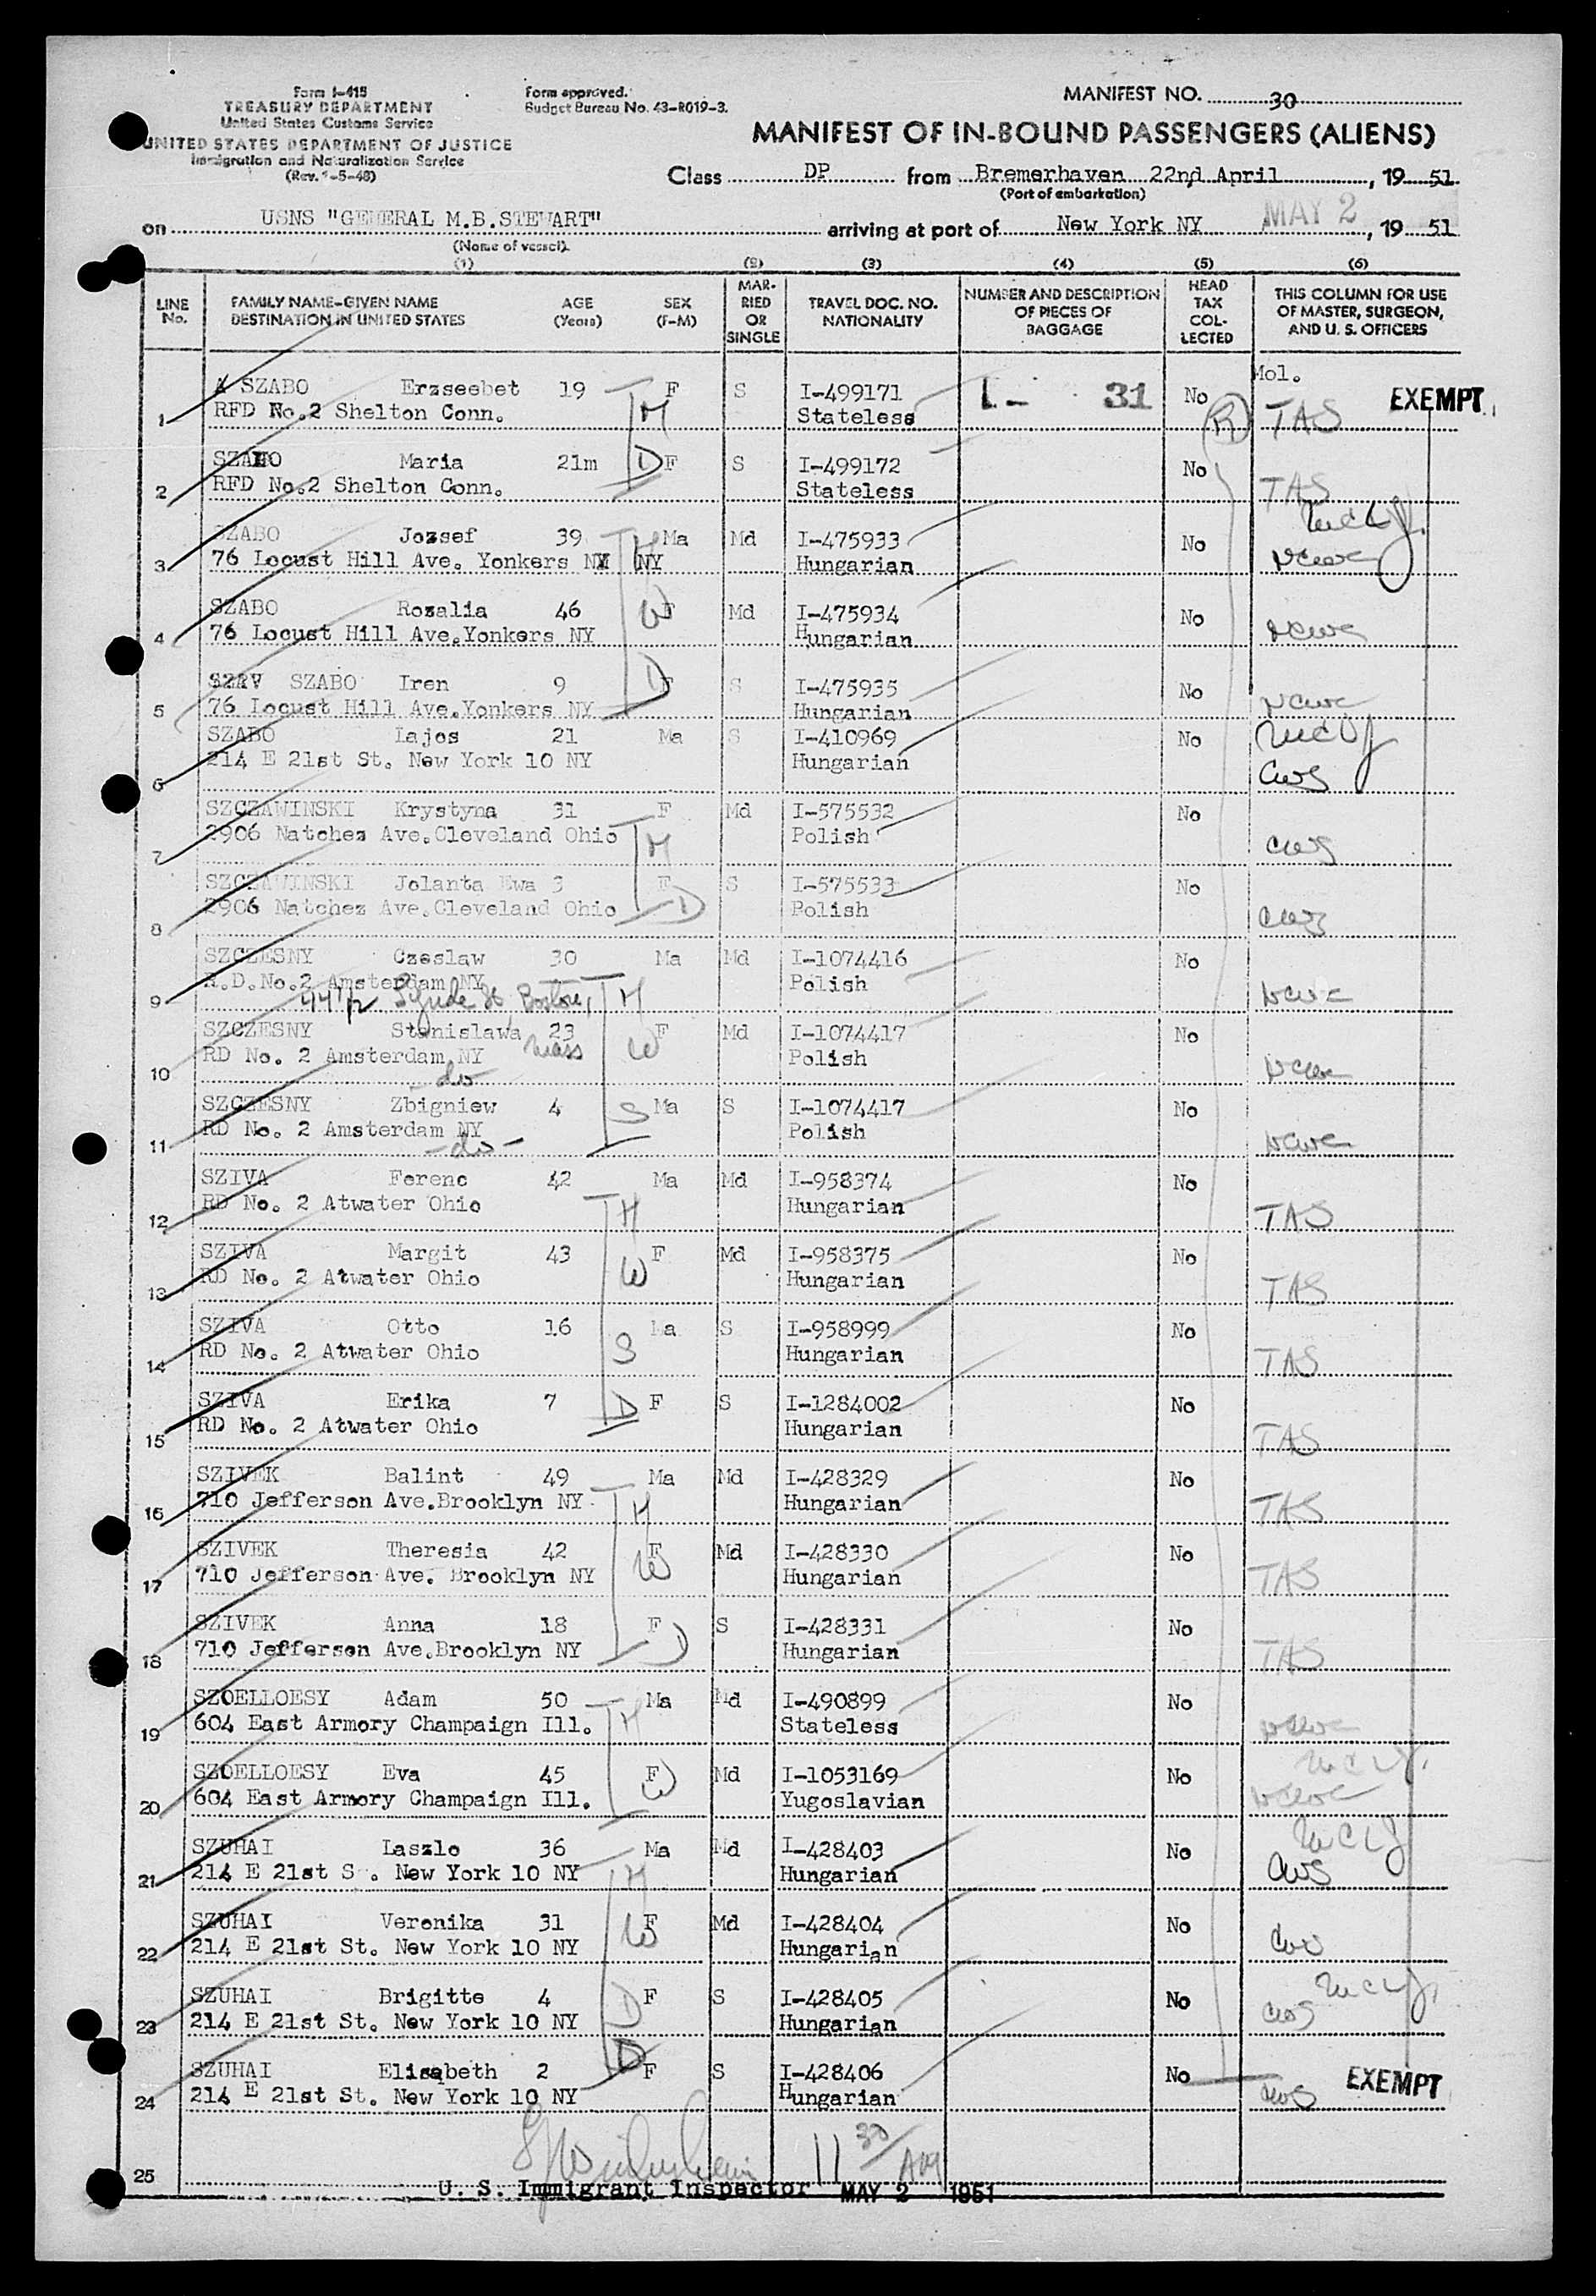 Form I-415
TREASURY DEPARTMENT
United States Customs Service
UNITED STATES DEPARTMENT OF JUSTICE
Immigration and Naturalization Service
(Rev. 1-5-48)
Form approved.
Budget Bureau No. 43-R019-3.
MANIFEST NO. 30
MANIFEST OF IN-BOUND PASSENGERS (ALIENS)
Class DP from Bremerhaven 22nd April, 19 51
(Port of embarkation)
on USNS "GENERAL M.B.STEWART" arriving at port of New York NY MAY 2, 19 51
(Name of vessel)
(1) (2) (3) (4) (5) (6)
LINE No. FAMILY NAME-GIVEN NAME DESTINATION IN UNITED STATES AGE (Years) SEX (F-M) MARRIED OR SINGLE TRAVEL DOC. NO. NATIONALITY NUMBER AND DESCRIPTION OF PIECES OF BAGGAGE HEAD TAX COLLECTED THIS COLUMN FOR USE OF MASTER, SURGEON, AND U. S. OFFICERS
Mol.
A SZABO Erzseebet 19 F S I-499171 L- 31 No EXEMPT
1 RFD No.2 Shelton Conn. M Stateless R TAS
SZABO Maria 21m D F S I-499172 No
2 RFD No.2 Shelton Conn. Stateless TAS
SZABO Jozsef 39 Ma Md I-475933 No
3 76 Locust Hill Ave. Yonkers NY NY Hungarian NCWC
SZABO Rozalia 46 W F Md I-475934 No
4 76 Locust Hill Ave.Yonkers NY Hungarian NCWC
SZAV SZABO Iren 9 D F S I-475935 No
5 76 Locust Hill Ave.Yonkers NY Hungarian NCWC
SZABO Lajos 21 Ma S I-410969 No
6 214 E 21st St. New York 10 NY Hungarian CWS
SZCZAWINSKI Krystyna 31 F Md I-575532 No
7 2906 Natchez Ave.Cleveland Ohio M Polish CWS
SZCZAWINSKI Jolanta Ewa 3 F S I-575533 No
8 2906 Natchez Ave.Cleveland Ohio D Polish CWS
SZCZESNY Czeslaw 30 Ma Md I-1074416 No
R.D.No.2 Amsterdam NY H Polish
9 44 1/2 Boston, NCWC
SZCZESNY Stanislawa 23 F Md I-1074417 No
RD No. 2 Amsterdam NY Mass W Polish
10 -do- NCWC
SZCZESNY Zbigniew 4 S Ma S I-1074417 No
RD No. 2 Amsterdam NY Polish
11 -do- NCWC
SZIVA Ferenc 42 Ma Md I-958374 No
12 RD No. 2 Atwater Ohio H Hungarian TAS
SZIVA Margit 43 F Md I-958375 No
13 RD No. 2 Atwater Ohio W Hungarian TAS
SZIVA Otto 16 Ma S I-958999 No
14 RD No. 2 Atwater Ohio S Hungarian TAS
SZIVA Erika 7 D F S I-1284002 No
15 RD No. 2 Atwater Ohio Hungarian TAS
SZIVEK Balint 49 Ma Md I-428329 No
16 710 Jefferson Ave.Brooklyn NY H Hungarian TAS
SZIVEK Theresia 42 F Md I-428330 No
17 710 Jefferson Ave. Brooklyn NY W Hungarian TAS
SZIVEK Anna 18 F S I-428331 No
18 710 Jefferson Ave.Brooklyn NY D Hungarian TAS
SZOELLOESY Adam 50 Ma Md I-490899 No
19 604 East Armory Champaign Ill. H Stateless NCWC
SZOELLOESY Eva 45 F Md I-1053169 No
20 604 East Armory Champaign Ill. W Yugoslavian NCWC
SZUHAI Laszlo 36 Ma Md I-428403 No
21 214 E 21st S . New York 10 NY H Hungarian CWS
SZUHAI Veronika 31 F Md I-428404 No
22 214 E 21st St. New York 10 NY W Hungarian CWS
SZUHAI Brigitte 4 F S I-428405 No
23 214 E 21st St. New York 10 NY D Hungarian CWS
SZUHAI Elisabeth 2 D F S I-428406 No EXEMPT
24 214 E 21st St. New York 10 NY Hungarian CWS
25 11 30/AM
U. S. Immigrant Inspector MAY 2 1951